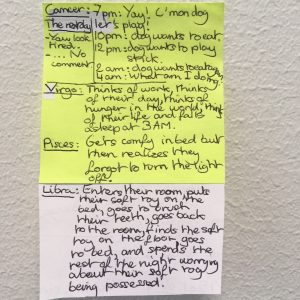 Cancer: 7pm: Yay! C'mon dog
let's play!
The next day
10pm: dog wants to eat.
-You look tired.
12pm: dog wants to play
stick.
... No comment
2am: dog wants to eat again
4am: What am I doing?
Virgo: Thinks of work, thinks
of their day, thinks of
hunger in the world, think
of their life and falls
asleep at 3AM.
Pisces: Gets comfy in bed but
then realizes they
forgot to turn the light
off!
Libra: Enters their room, puts
their soft toy on the
bed, goes to brush
their teeth, goes back
to the room, finds the soft
toy on the floor, goes
to bed, and spends the
rest of the night worrying
about their soft toy
being possessed.